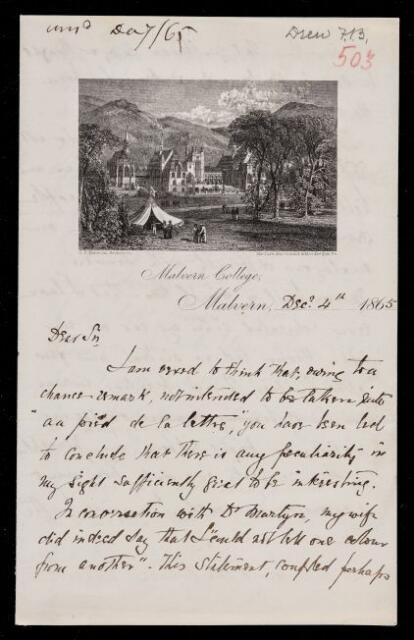 Dec 7/65
Drew 7.13.
503
Malvern College,
Malvern, Decr. 4th 1865
Dear Sir
I am vexed to think that, owing to a
chance remark, not intended to be taken into
"au pied de la lettre," you have been led
to conclude that there is any peculiarity in
my sight sufficiently great to be interesting.
In conversation with Dr Martyn, my wife
did indeed say that I "could not tell one colour
from another". This statement, coupled perhaps